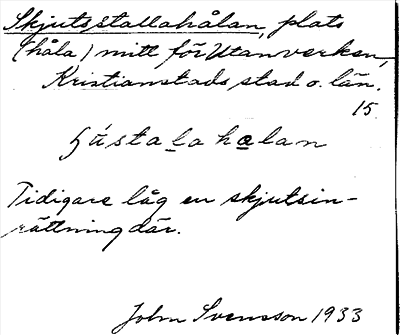 Skjutsstallahålan, plats
(håla) mitt för Utanverken,
Kristianstads stad o. län.
15.
Tidigare låg en skjutsin-
rättning där.
John Svensson 1933